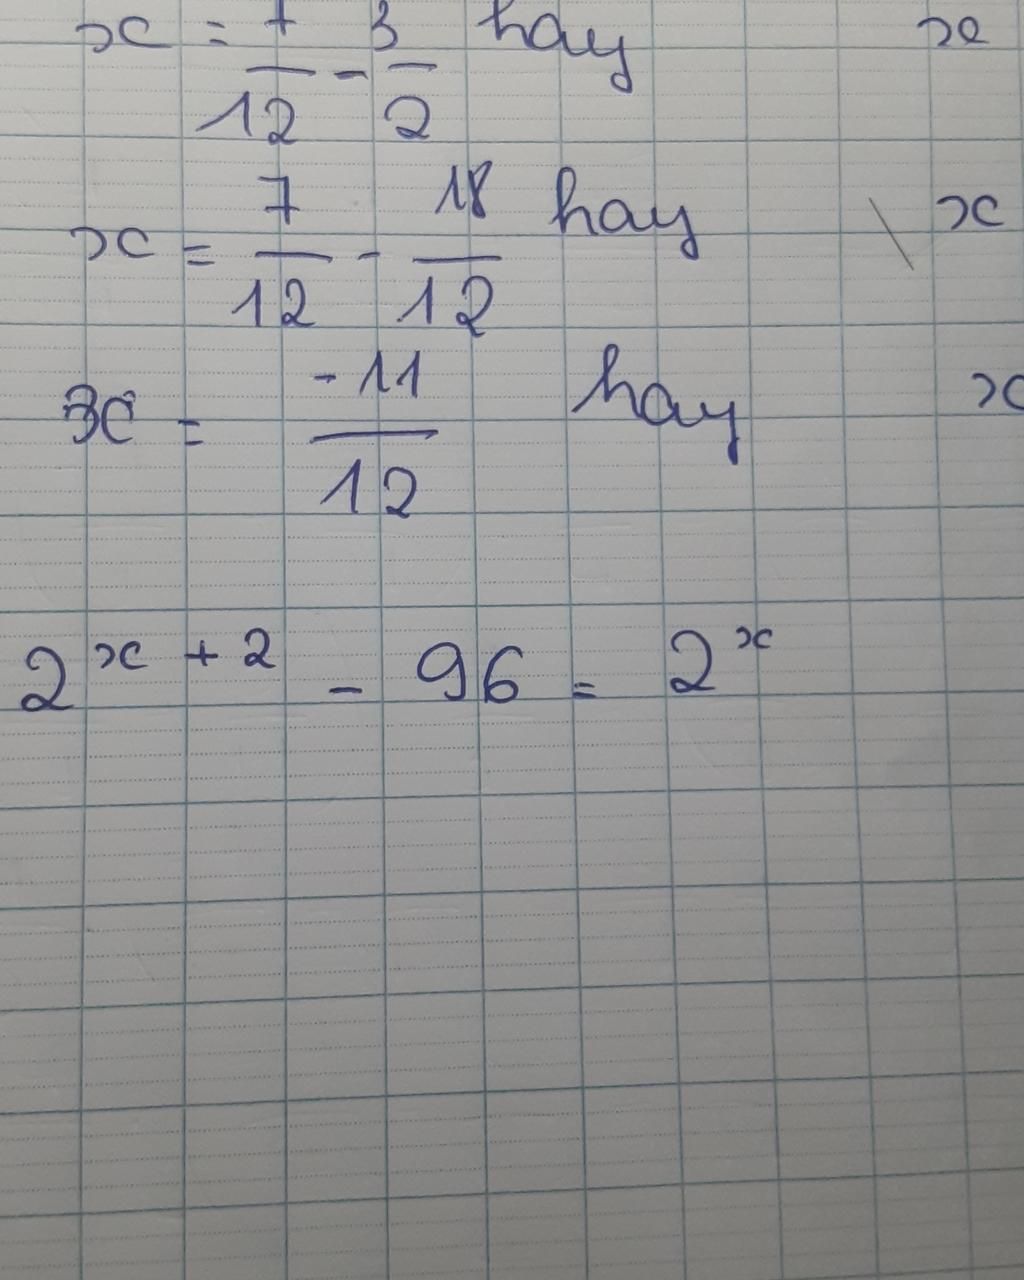 x = 7/12 - 3/2 hay x
x = 7/12 - 18/12 hay x
x = -11/12 hay x
2^{x + 2} - 96 = 2^x